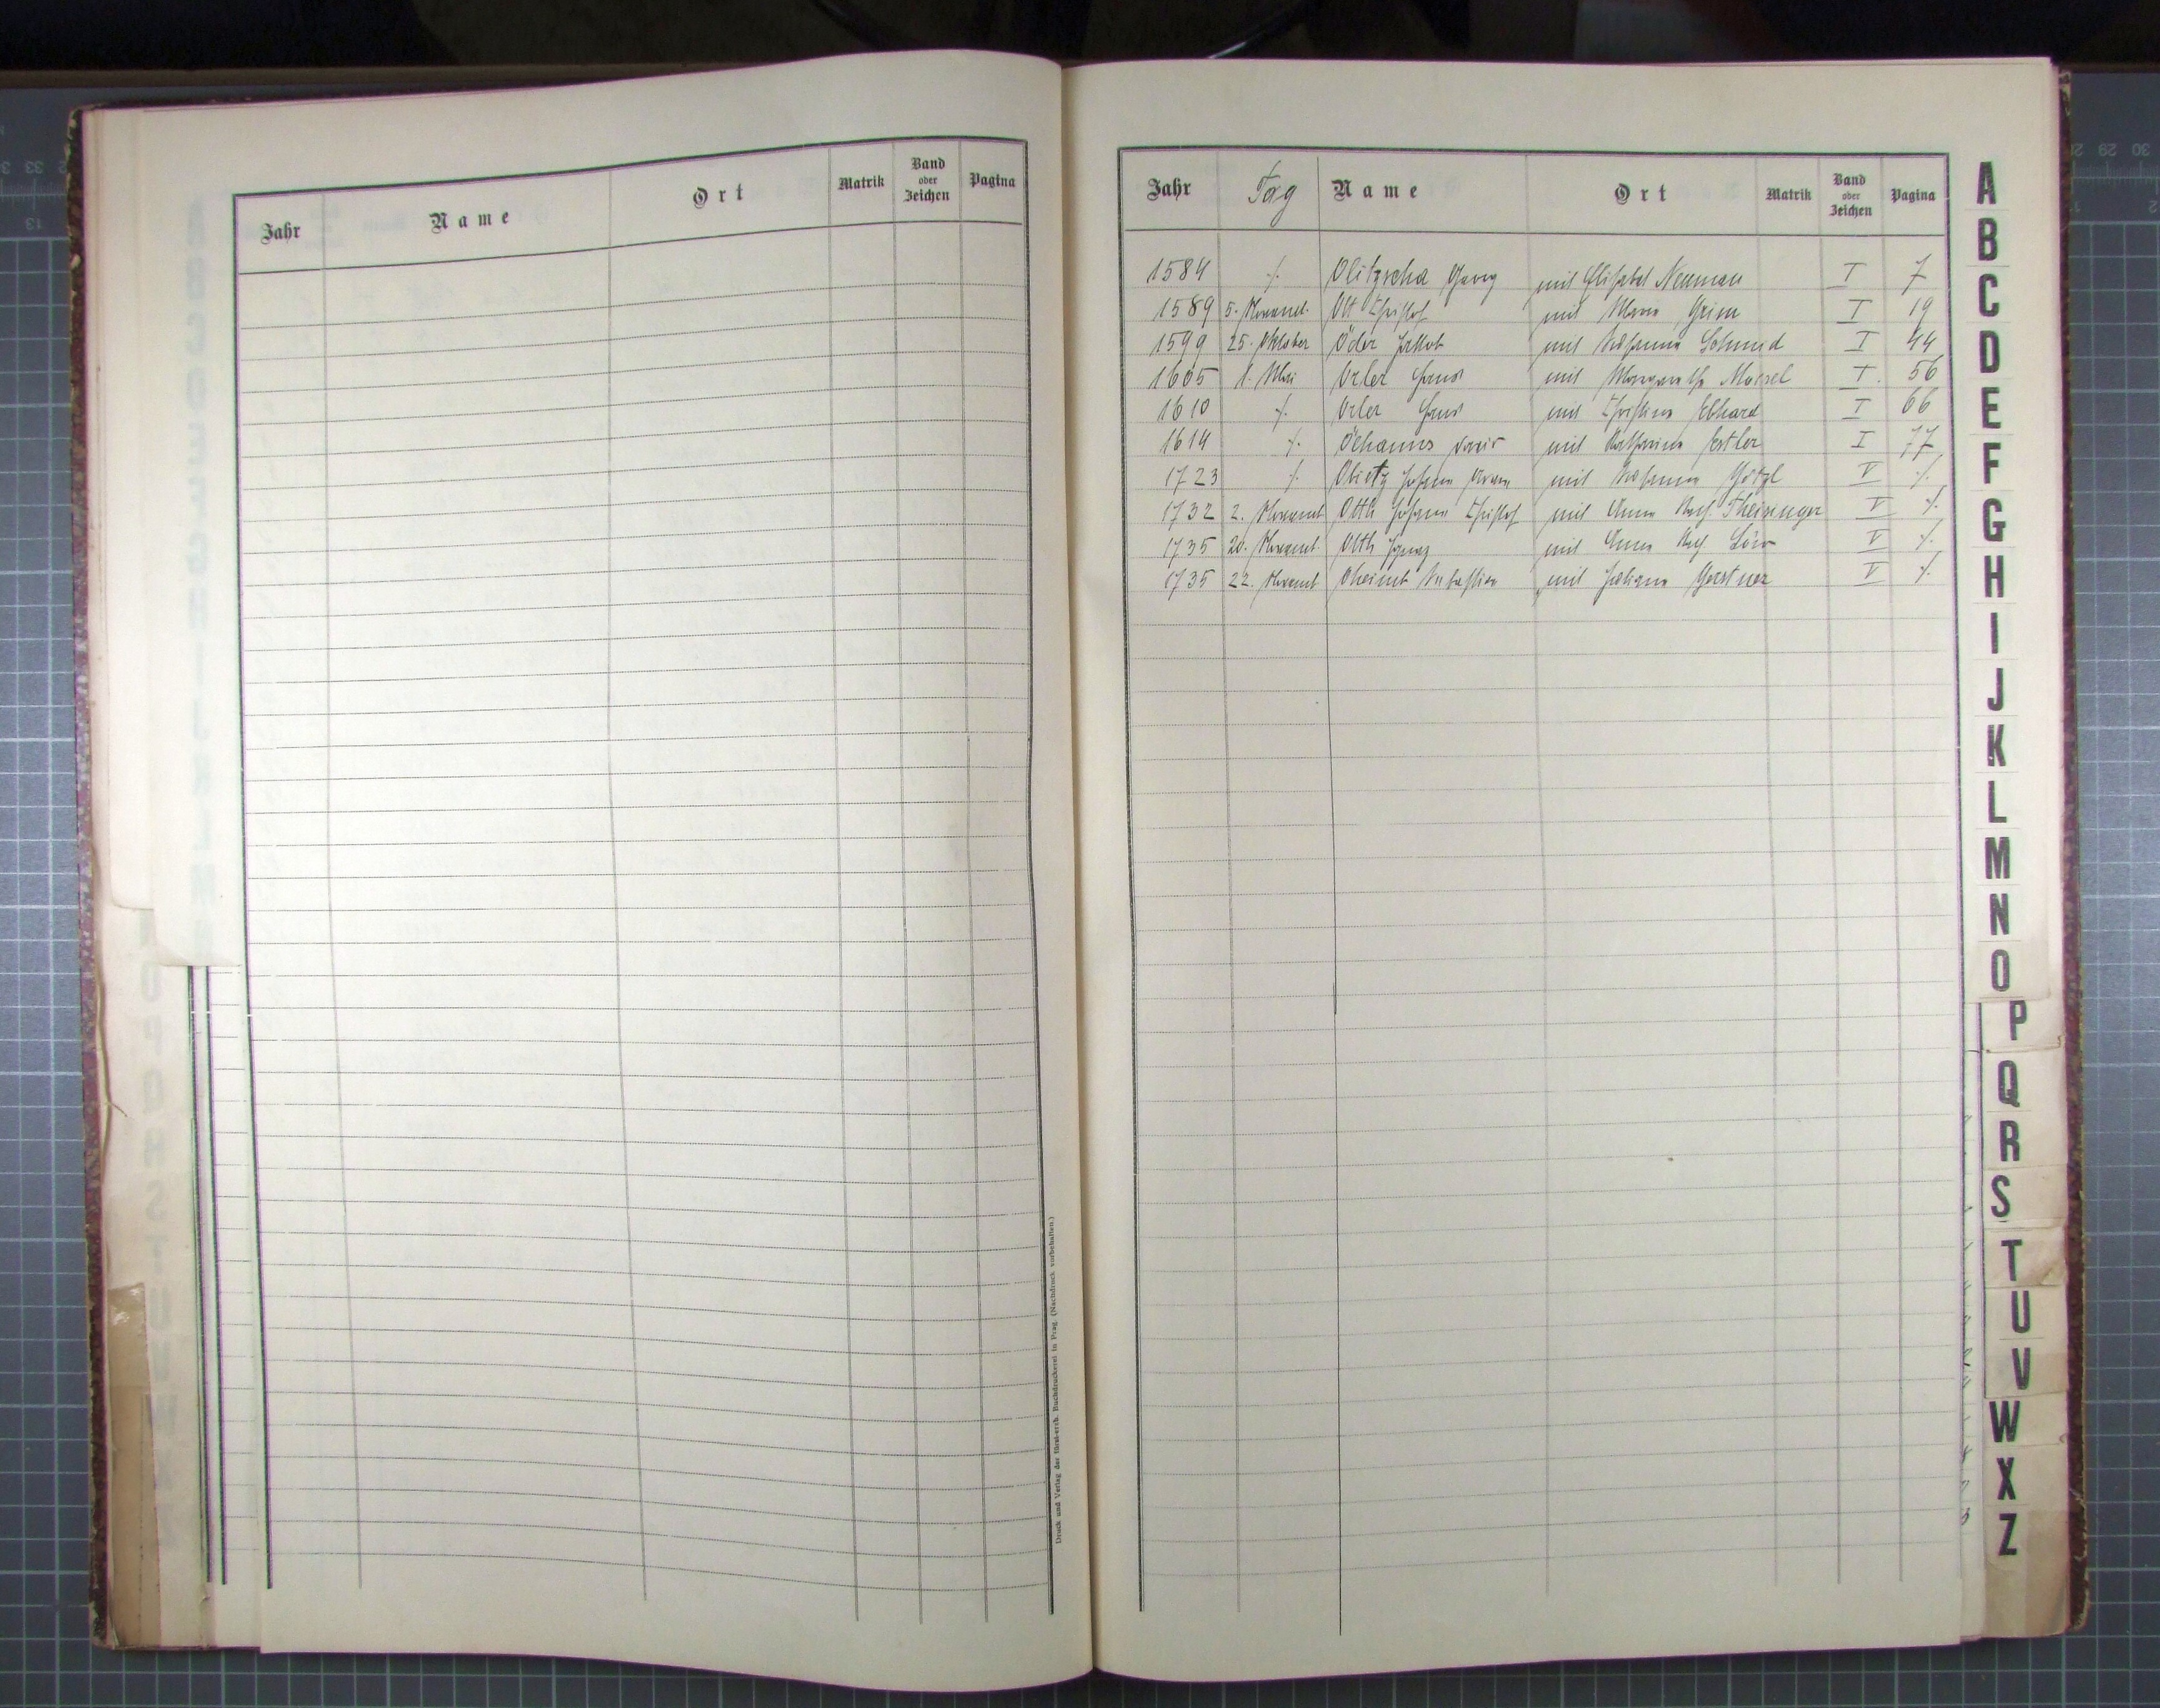 Jahr Name Ort Matrik Band oder Zeichen Pagina
Druck und Verlag der fürst-erzb. Buchdruckerei in Prag. (Nachdruck vorbehalten.)
Jahr Tag Name Ort Matrik Band oder Zeichen Pagina
1584 ⁒ Olitzscha Georg mit Elisabet Neuman I 7
1589 5. Novemb. Ott Christof mit Maria Grim I 19
1599 25. Oktober Öder Jakob mit Susanna Schmid I 44
1605 1. Mai Orler Hans mit Margaretha I. 56
1610 ⁒ Orler Hans mit Christina Ebhard I 66
1614 ⁒ mit Katharina I 77
1723 ⁒ Obietz Johann mit Susanna Götzl V ⁒
1732 2. Novemb Otth Johann Christof mit Anna V ⁒
1735 20. Novemb. Otth Ignaz mit Anna Löw V ⁒
1735 22. Novemb Oheimb Sebastian mit Juliana Gerstner V ⁒
A
B
C
D
E
F
G
H
I
J
K
L
M
N
O
P
Q
R
S
T
U
V
W
X
Z